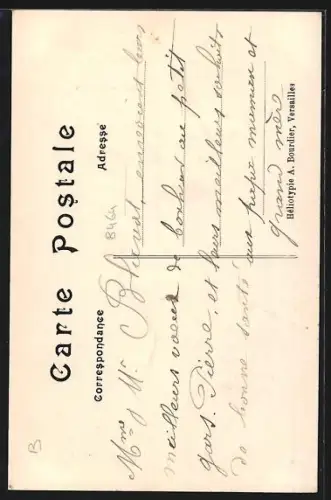 Carte Postale
Correspondance
Adresse
Mme & Mr envoient leurs
meilleurs voeux de bonheur au petit
gars Pierre, et leurs meilleurs souhaits
de bonne santé aux maman et
grand mère
Héliotypie A. Bourdier, Versailles
8464
B